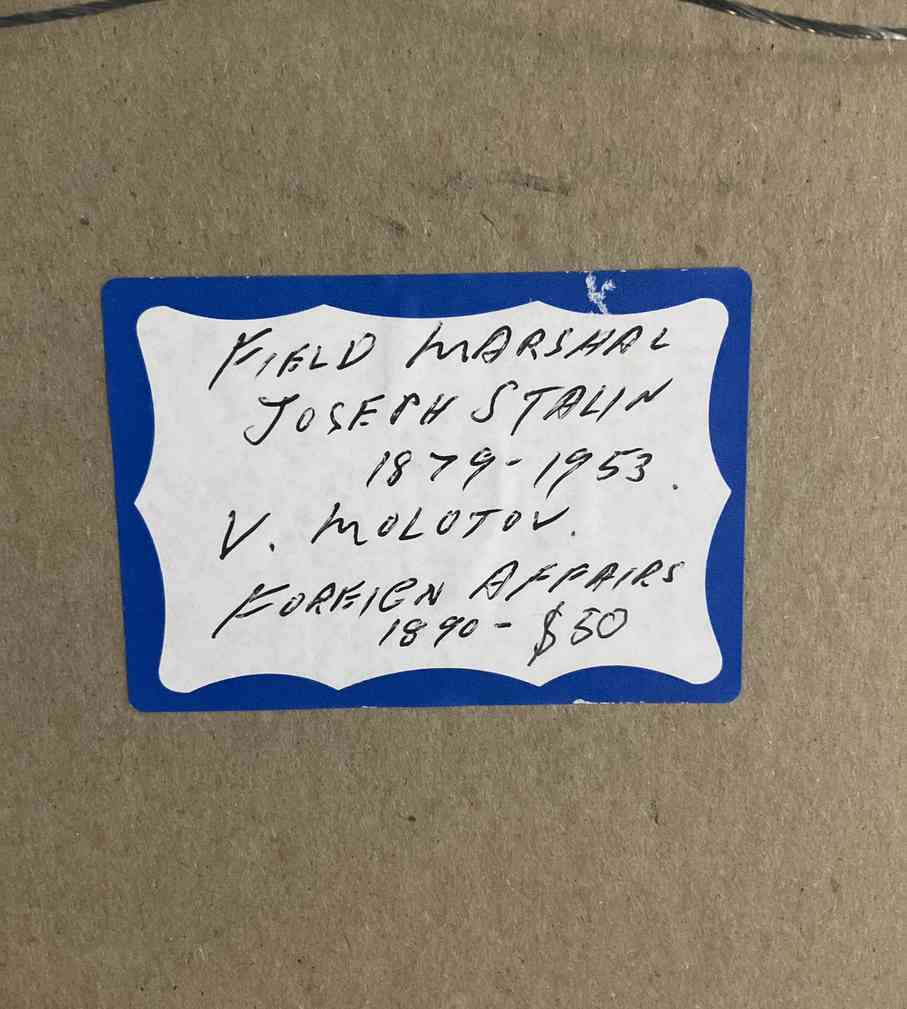 FIELD MARSHAL
JOSEPH STALIN
1879-1953.
V. MOLOTOV.
FOREIGN AFFAIRS
1890- $50